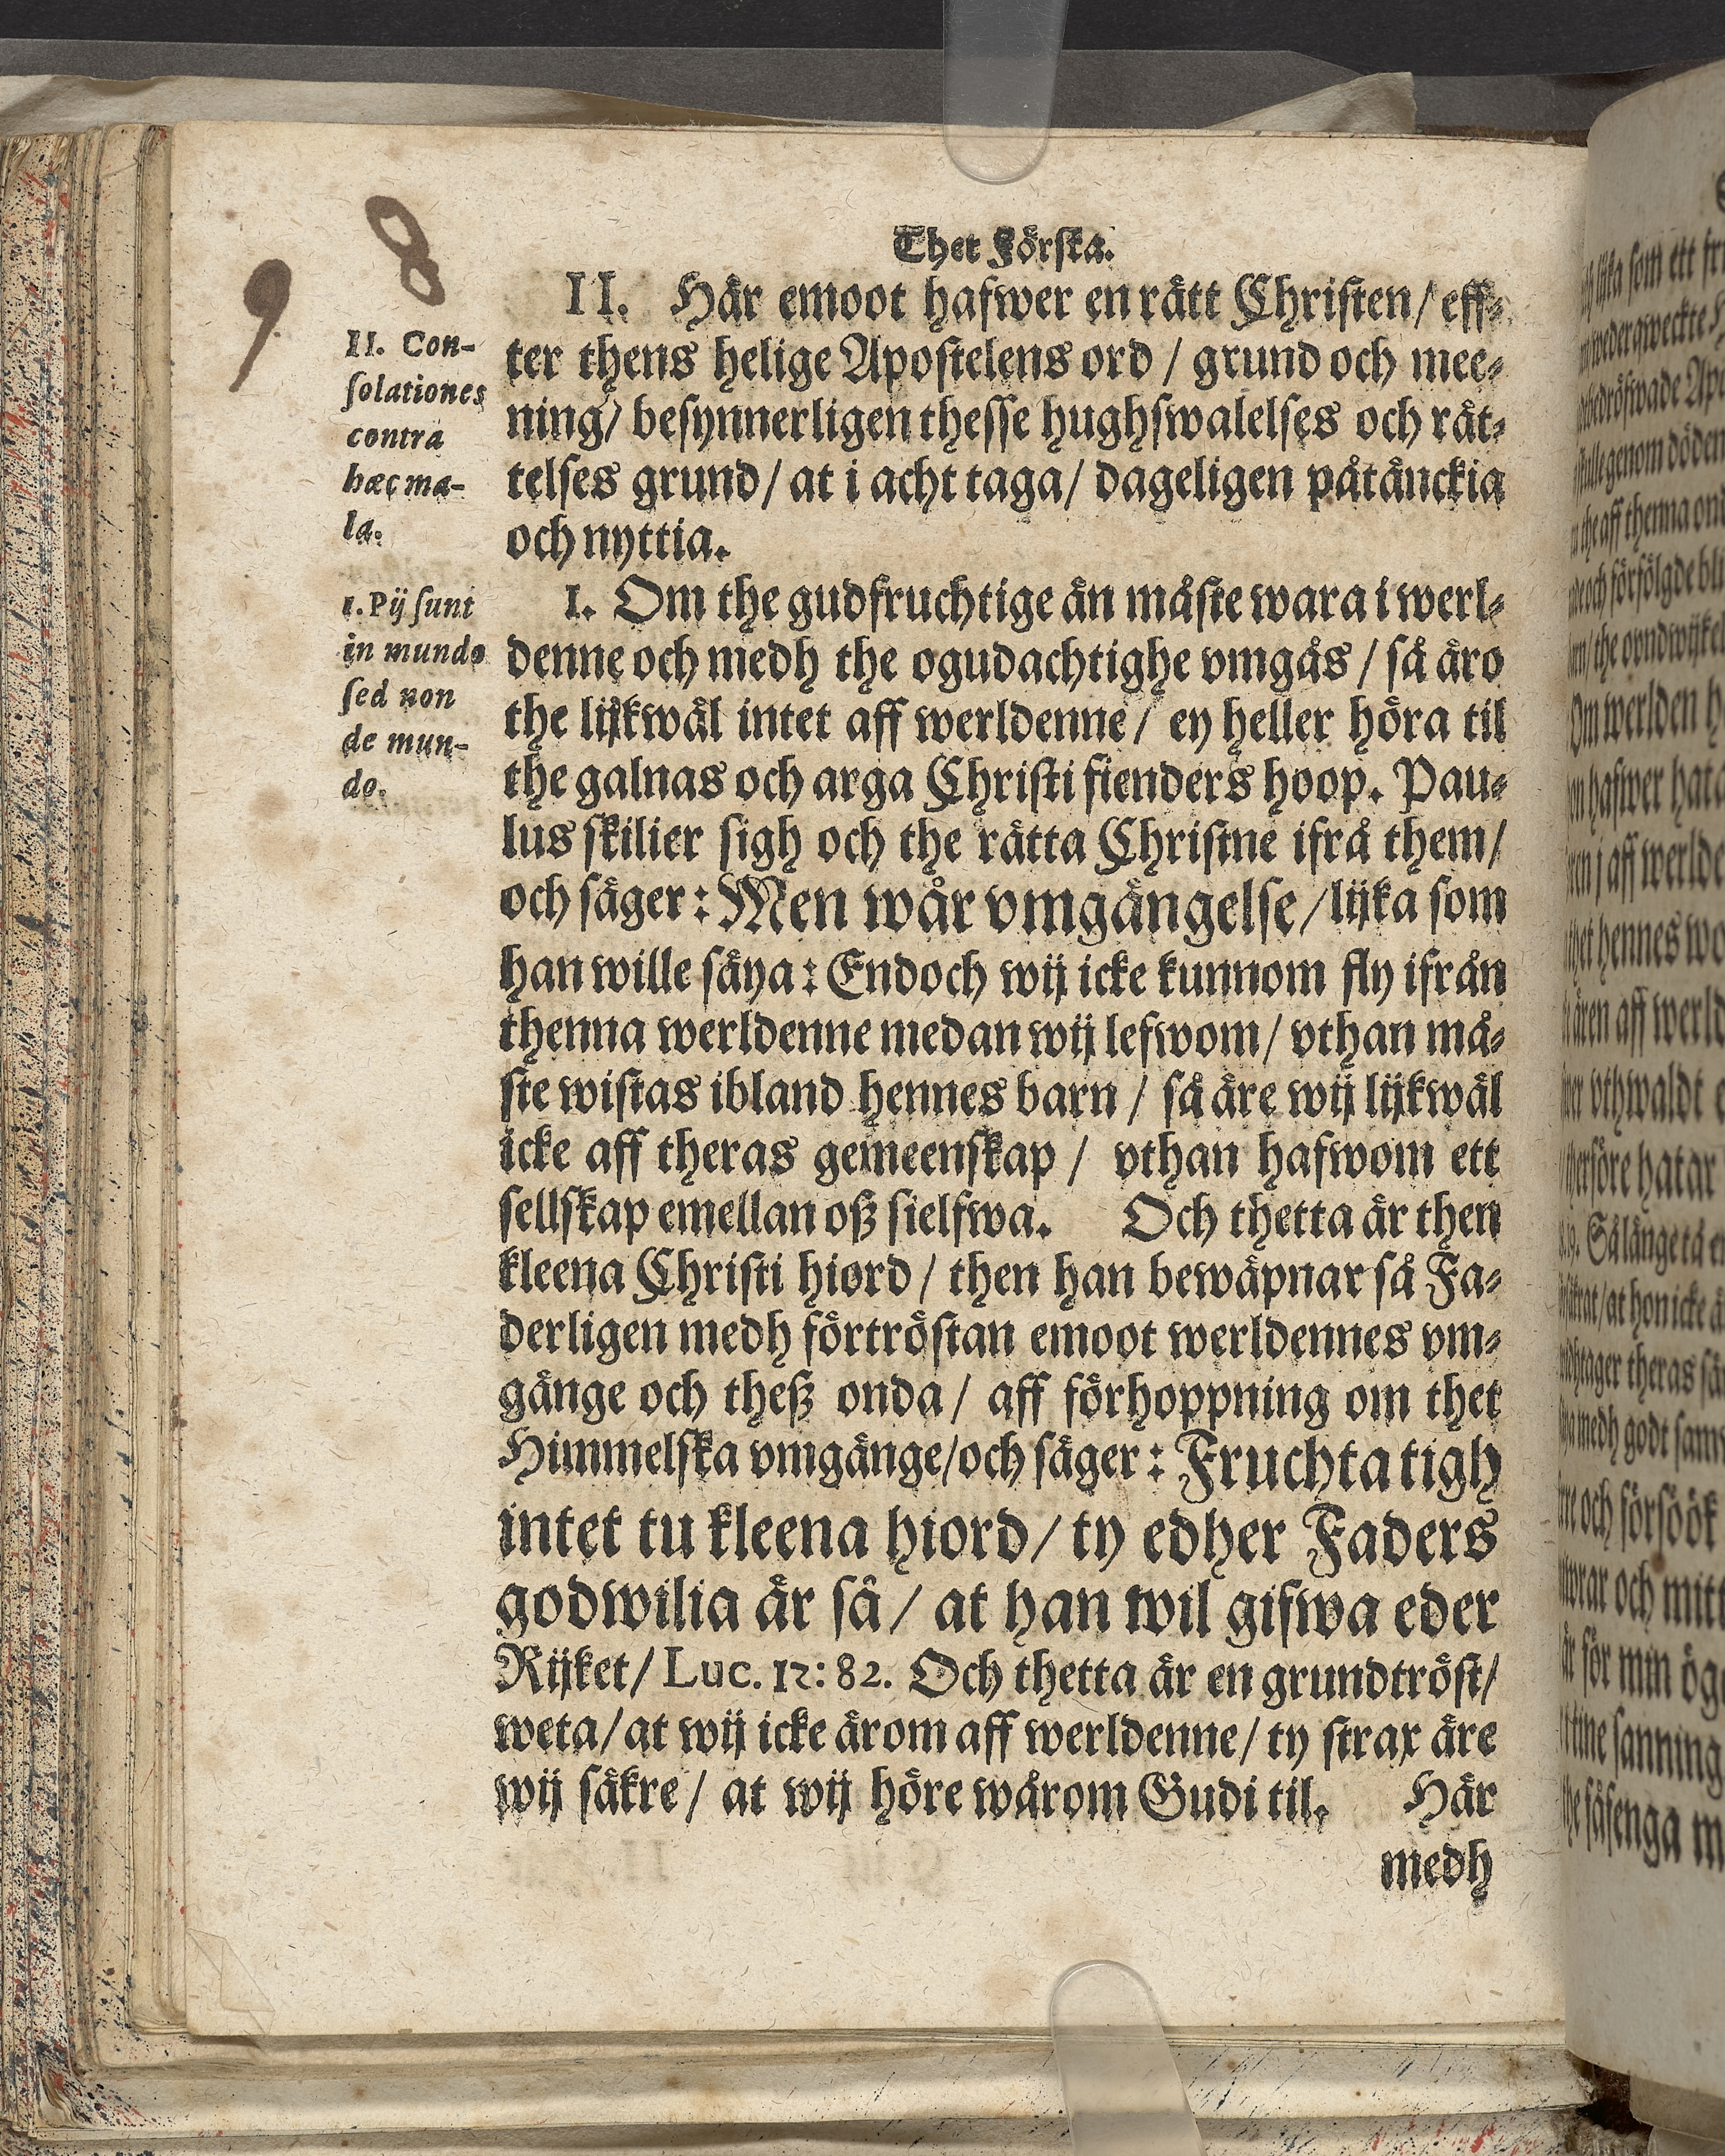 9 8
Thet Förſta.
II. Con-
ſolationes
contra
hæc ma-
la.
1. Pij ſunt
in mundo
ſed non
de mun-
do.
II. Här emoot hafwer en rätt Chriſten / eff-
ter thens helige Apoſtelens ord / grund och mee-
ning / beſynnerligen theſſe hughſwalelſes och rät-
telſes grund / at i acht taga / dageligen påtänckia
och nyttia.
1. Om the gudfruchtige än måſte wara i werl-
denne och medh the ogudachtighe vmgås / så äro
the lijkwäl intet aff werldenne / ey heller höra til
the galnas och arga Chriſti fienders hoop. Pau-
lus ſkilier ſigh och the rätta Chriſtne ifrå them /
och ſäger: Men wår vmgängelſe / lijka ſom
han wille ſäya: Endoch wij icke kunnom fly ifrån
thenna werldenne medan wij lefwom / vthan må-
ſte wiſtas ibland hennes barn / ſå äre wij lijkwäl
icke aff theras gemeenſkap / vthan hafwom ett
ſellſkap emellan oß ſielfwa. Och thetta är then
kleena Chriſti hiord / then han bewäpnar ſå Fa-
derligen medh förtröſtan emoot werldennes vm-
gänge och theß onda / aff förhoppning om thet
Himmelſka vmgänge / och ſäger: Fruchta tigh
intet tu kleena hiord / ty edher Faders
godwilia är ſå / at han wil gifwa eder
Rijket / Luc. 12: 82. Och thetta är en grundtröſt /
weta / at wij icke ärom aff werldenne / ty ſtrax äre
wij ſäkre / at wij höre wårom Gudi til. Här
medh